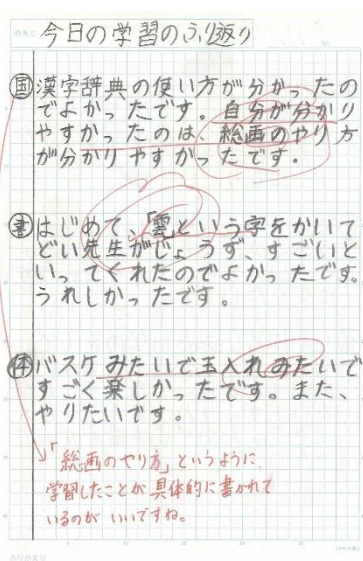 めあて 今日の学習のふり返り
国 漢字辞典の使い方が分かったの
でよかったです。自分が分かり
やすかったのは、総画のやり方
が分かりやすかったです。
書 はじめて、「雲」という字をかいて
どい先生がじょうず、すごいと
いってくれたのでよかったです。
うれしかったです。
体 バスケみたいで玉入れみたいで
すごく楽しかったです。また、
やりたいです。
「総画のやり方」というように、
学習したことが具体的に書かれて
いるのがいいですね。
ふりかえり